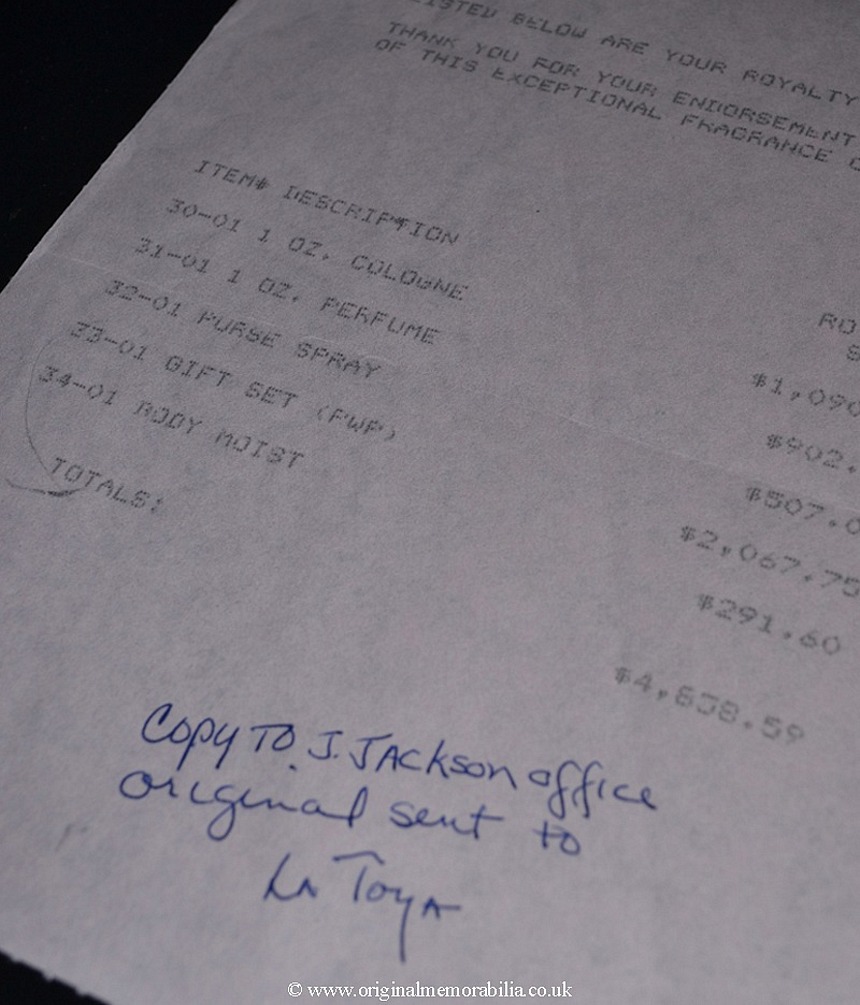 LISTED BELOW ARE YOUR ROYALTY
THANK YOU FOR YOUR ENDORSEMENT
OF THIS EXCEPTIONAL FRAGRANCE
ITEM# DESCRIPTION
RO
30-01 1 OZ. COLOGNE $1,090
31-01 1 OZ. PERFUME $902.
32-01 PURSE SPRAY $507.0
33-01 GIFT SET (PWP) $2,067.75
34-01 BODY MOIST $291.60
TOTALS: $4,858.59
Copy To J. JACkson office
original sent to
LA ToyA
© www.originalmemorabilia.co.uk